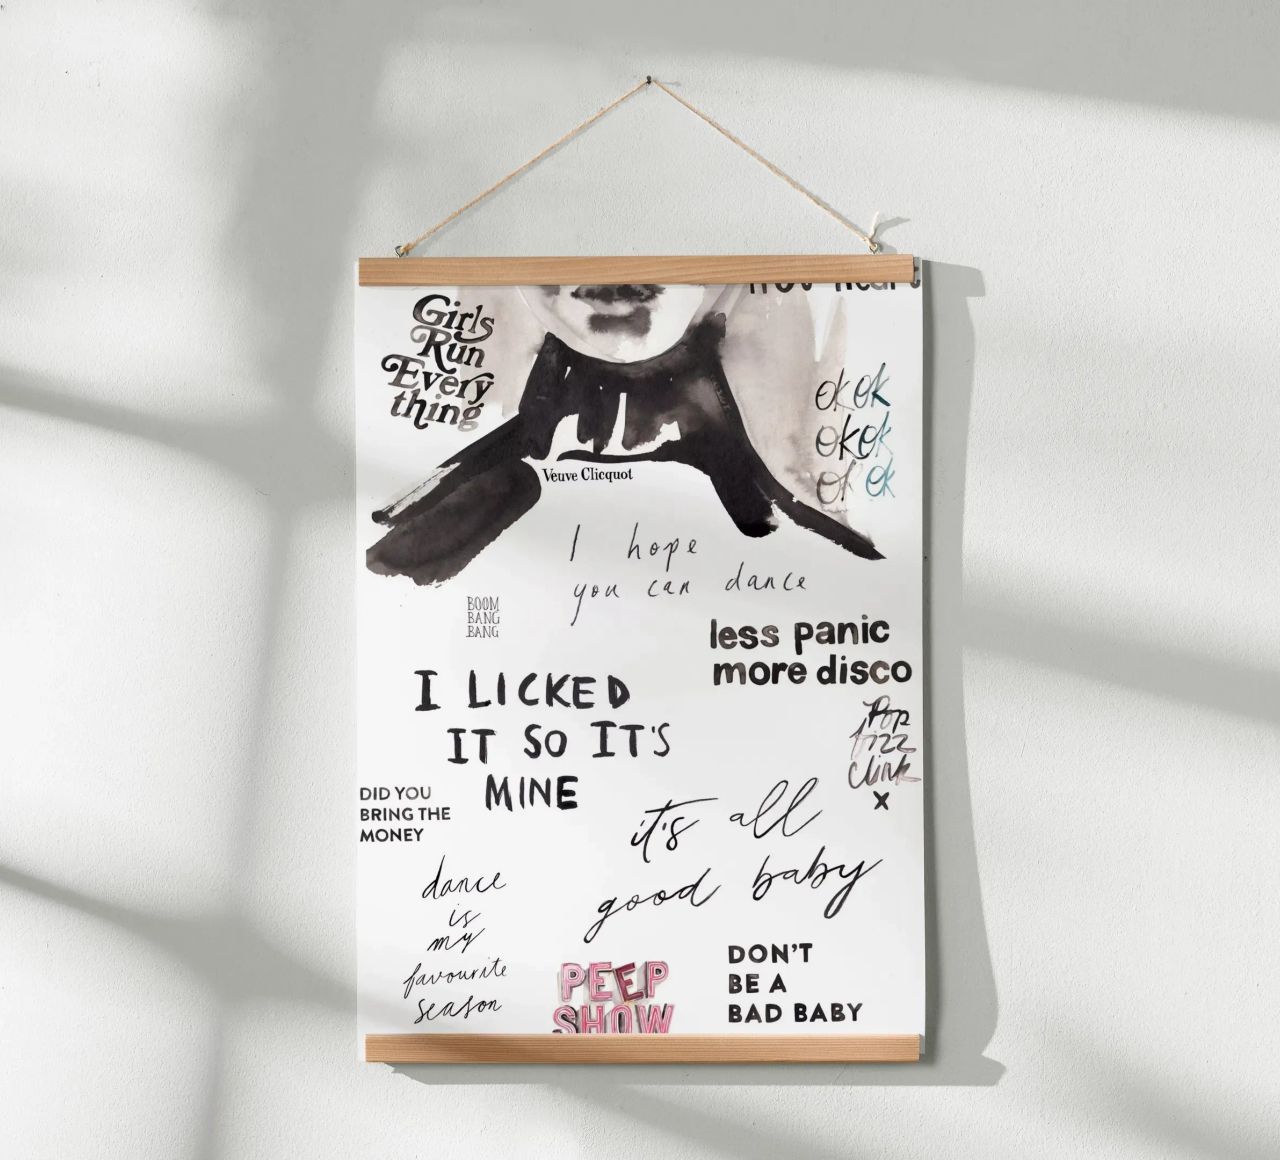 Girls
Run
Every
thing
ok ok
ok ok
ok ok
Veuve Clicquot
I hope
you can dance
BOOM
BANG
BANG
less panic
more disco
I LICKED
IT SO IT'S
MINE
Pop
fizz
Clink
X
DID YOU
BRING THE
MONEY
it's all
good baby
dance
is
my
favourite
season
PEEP
SHOW
DON'T
BE A
BAD BABY